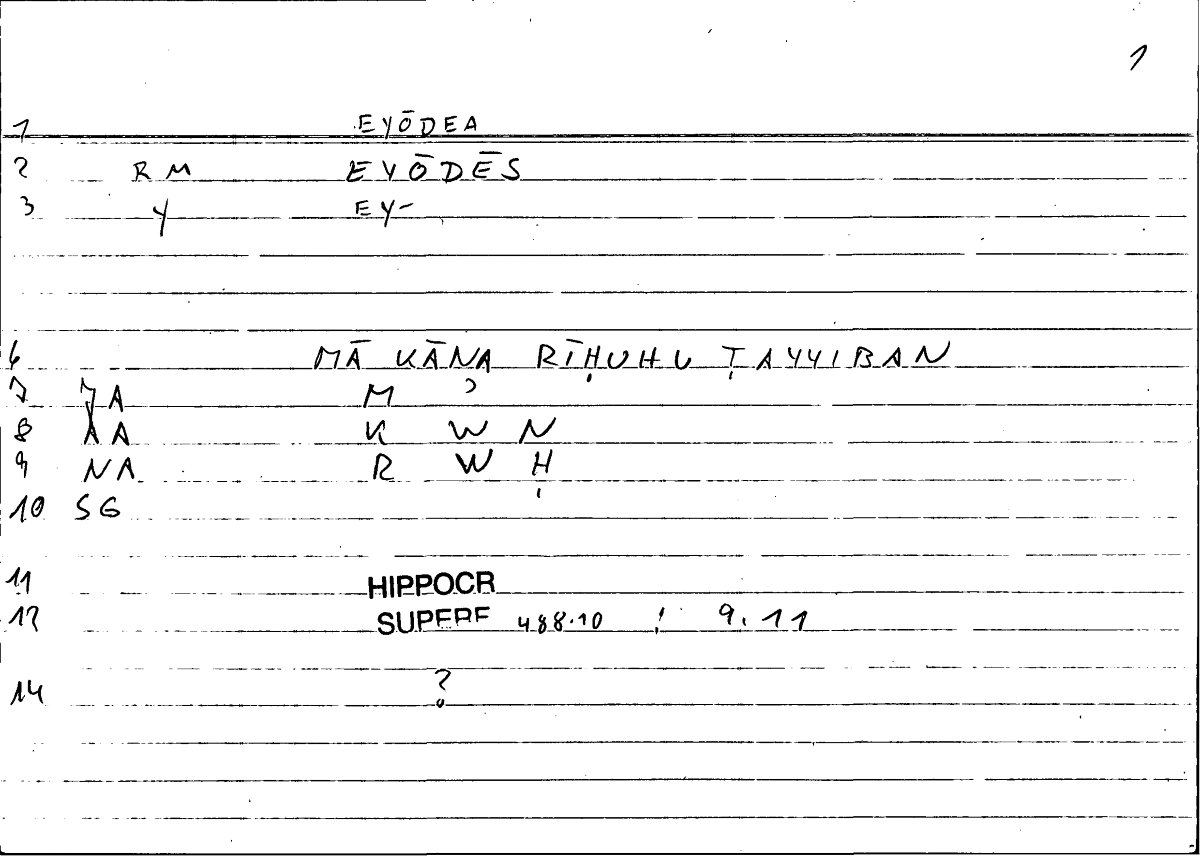 1
1 EYŌDEA
2 RM EYŌDĒS
3 Y EY-
6 MĀ KĀNA RĪḤUHU ṬAYYIBAN
7 JA M ʾ
8 AA K W N
9 NA R W Ḥ
10 SG
11 HIPPOCR
12 SUPERF 488.10 ! 9.11
14 ?